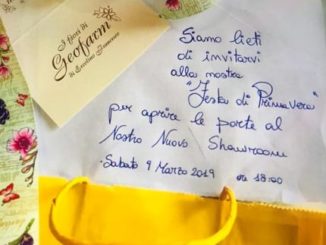 I fiori di
Geofarm
di
Siamo lieti
di invitarvi
alla nostra
"Festa di Primavera"
per aprire le porte al
Nostro Nuovo Showroom
Sabato 9 Marzo 2019 ore 18:00